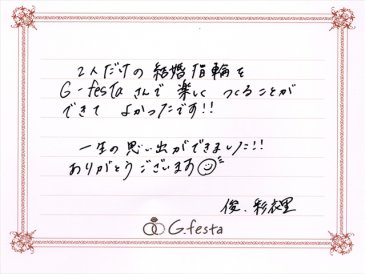 2人だけの結婚指輪を
G-festaさんで楽しくつくることが
できてよかったです!!
一生の思い出ができました!!
ありがとうございます
俊、彩衣里
G.festa